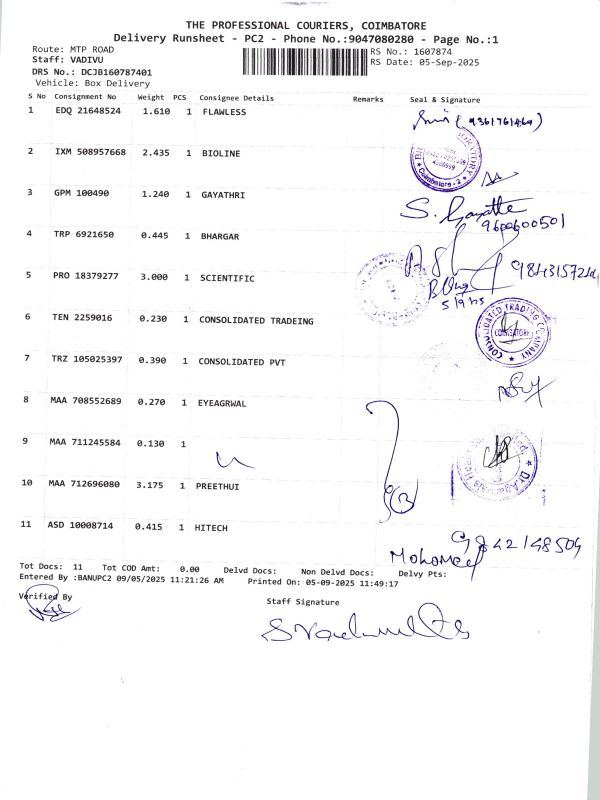 THE PROFESSIONAL COURIERS, COIMBATORE
Delivery Runsheet - PC2 - Phone No.:9047080280 - Page No.:1
Route: MTP ROAD
RS No.: 1607874
Staff: VADIVU
RS Date: 05-Sep-2025
DRS No.: DCJB160787401
Vehicle: Box Delivery
S No Consignment No Weight PCS Consignee Details Remarks Seal & Signature
1 EDQ 21648524 1.610 1 FLAWLESS
2 IXM 508957668 2.435 1 BIOLINE
Coimbatore - 2
3 GPM 100490 1.240 1 GAYATHRI
S. Gayatte
9600600501
4 TRP 6921650 0.445 1 BHARGAR
5 PRO 18379277 3.000 1 SCIENTIFIC
6 TEN 2259016 0.230 1 CONSOLIDATED TRADEING
CONSOLIDATED TRADING COMPANY
COIMBATORE
7 TRZ 105025397 0.390 1 CONSOLIDATED PVT
8 MAA 708552689 0.270 1 EYEAGRWAL
9 MAA 711245584 0.130 1
10 MAA 712696080 3.175 1 PREETHUI
11 ASD 10008714 0.415 1 HITECH
9842148504
Tot Docs: 11 Tot COD Amt: 0.00 Delvd Docs: Non Delvd Docs: Delvy Pts:
Entered By :BANUPC2 09/05/2025 11:21:26 AM Printed On: 05-09-2025 11:49:17
Verified By
Staff Signature